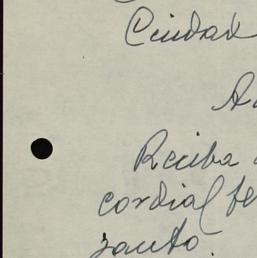 Ciudad
A
Reciba
cordial fe
santo.